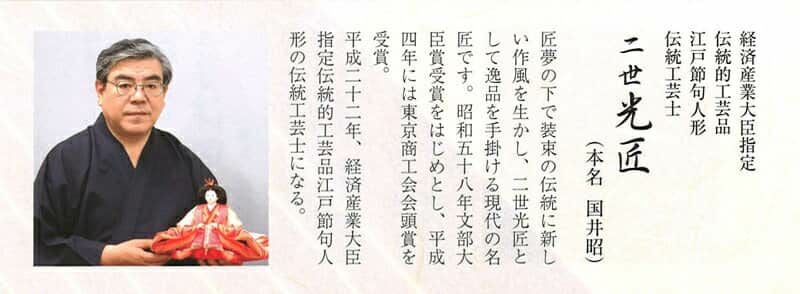 経済産業大臣指定
伝統的工芸品
江戸節句人形
伝統工芸士
二世光匠
（本名　国井昭）
匠夢の下で装束の伝統に新し
い作風を生かし、二世光匠と
して逸品を手掛ける現代の名
匠です。昭和五十八年文部大
臣賞受賞をはじめとし、平成
四年には東京商工会会頭賞を
受賞。
平成二十二年、経済産業大臣
指定伝統的工芸品江戸節句人
形の伝統工芸士になる。